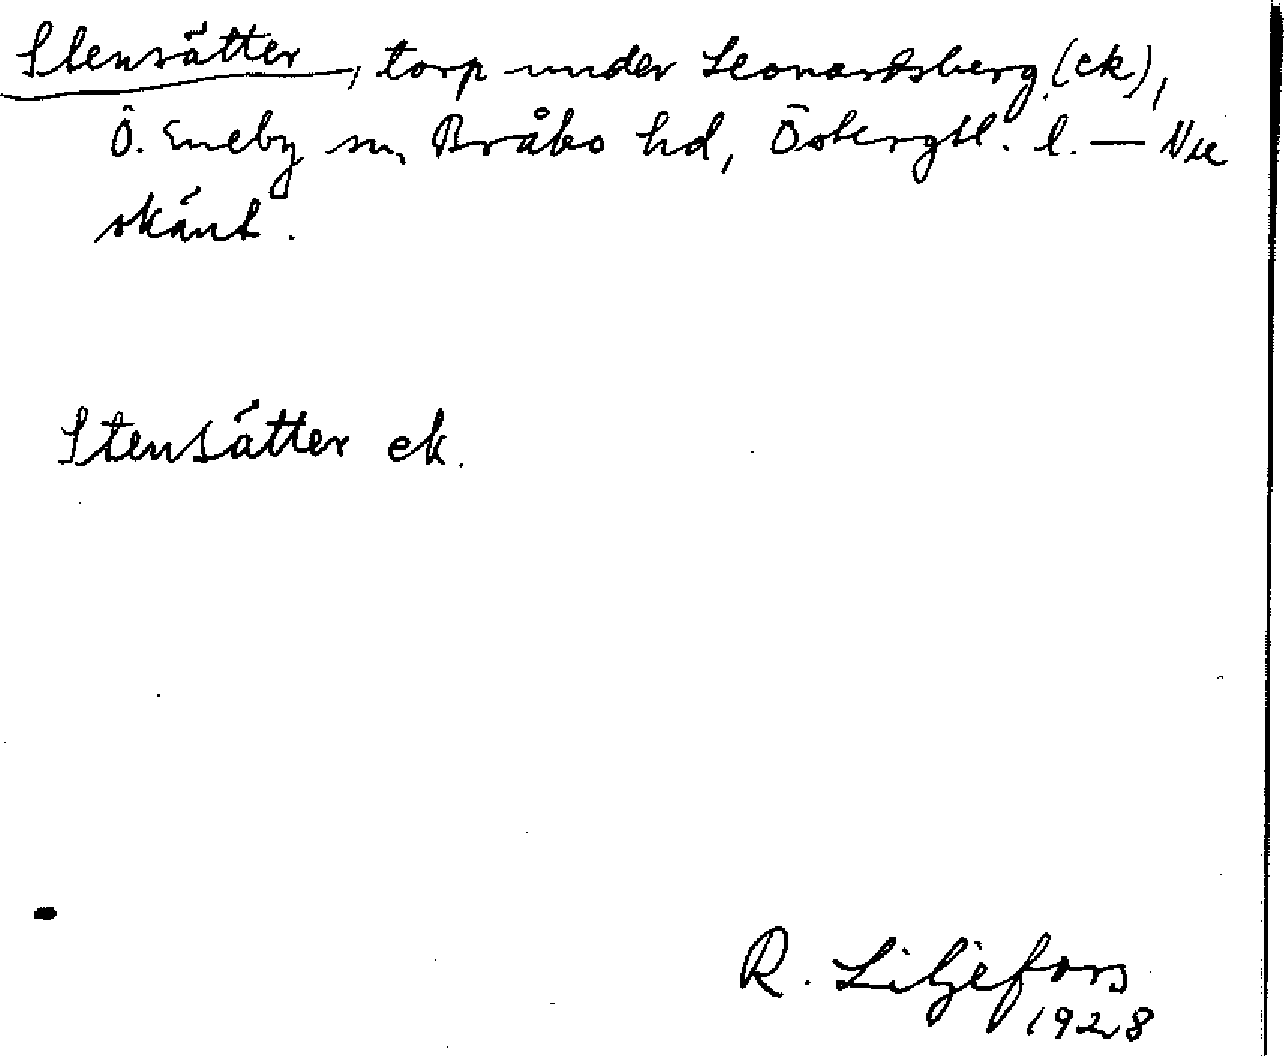 Stensätter, torp under Leonardsberg (ek),
Ö. Eneby sn, Bråbo hd, Östergtl. l. —
skänt.
Stensätter ek.
R. Liljefors
1928